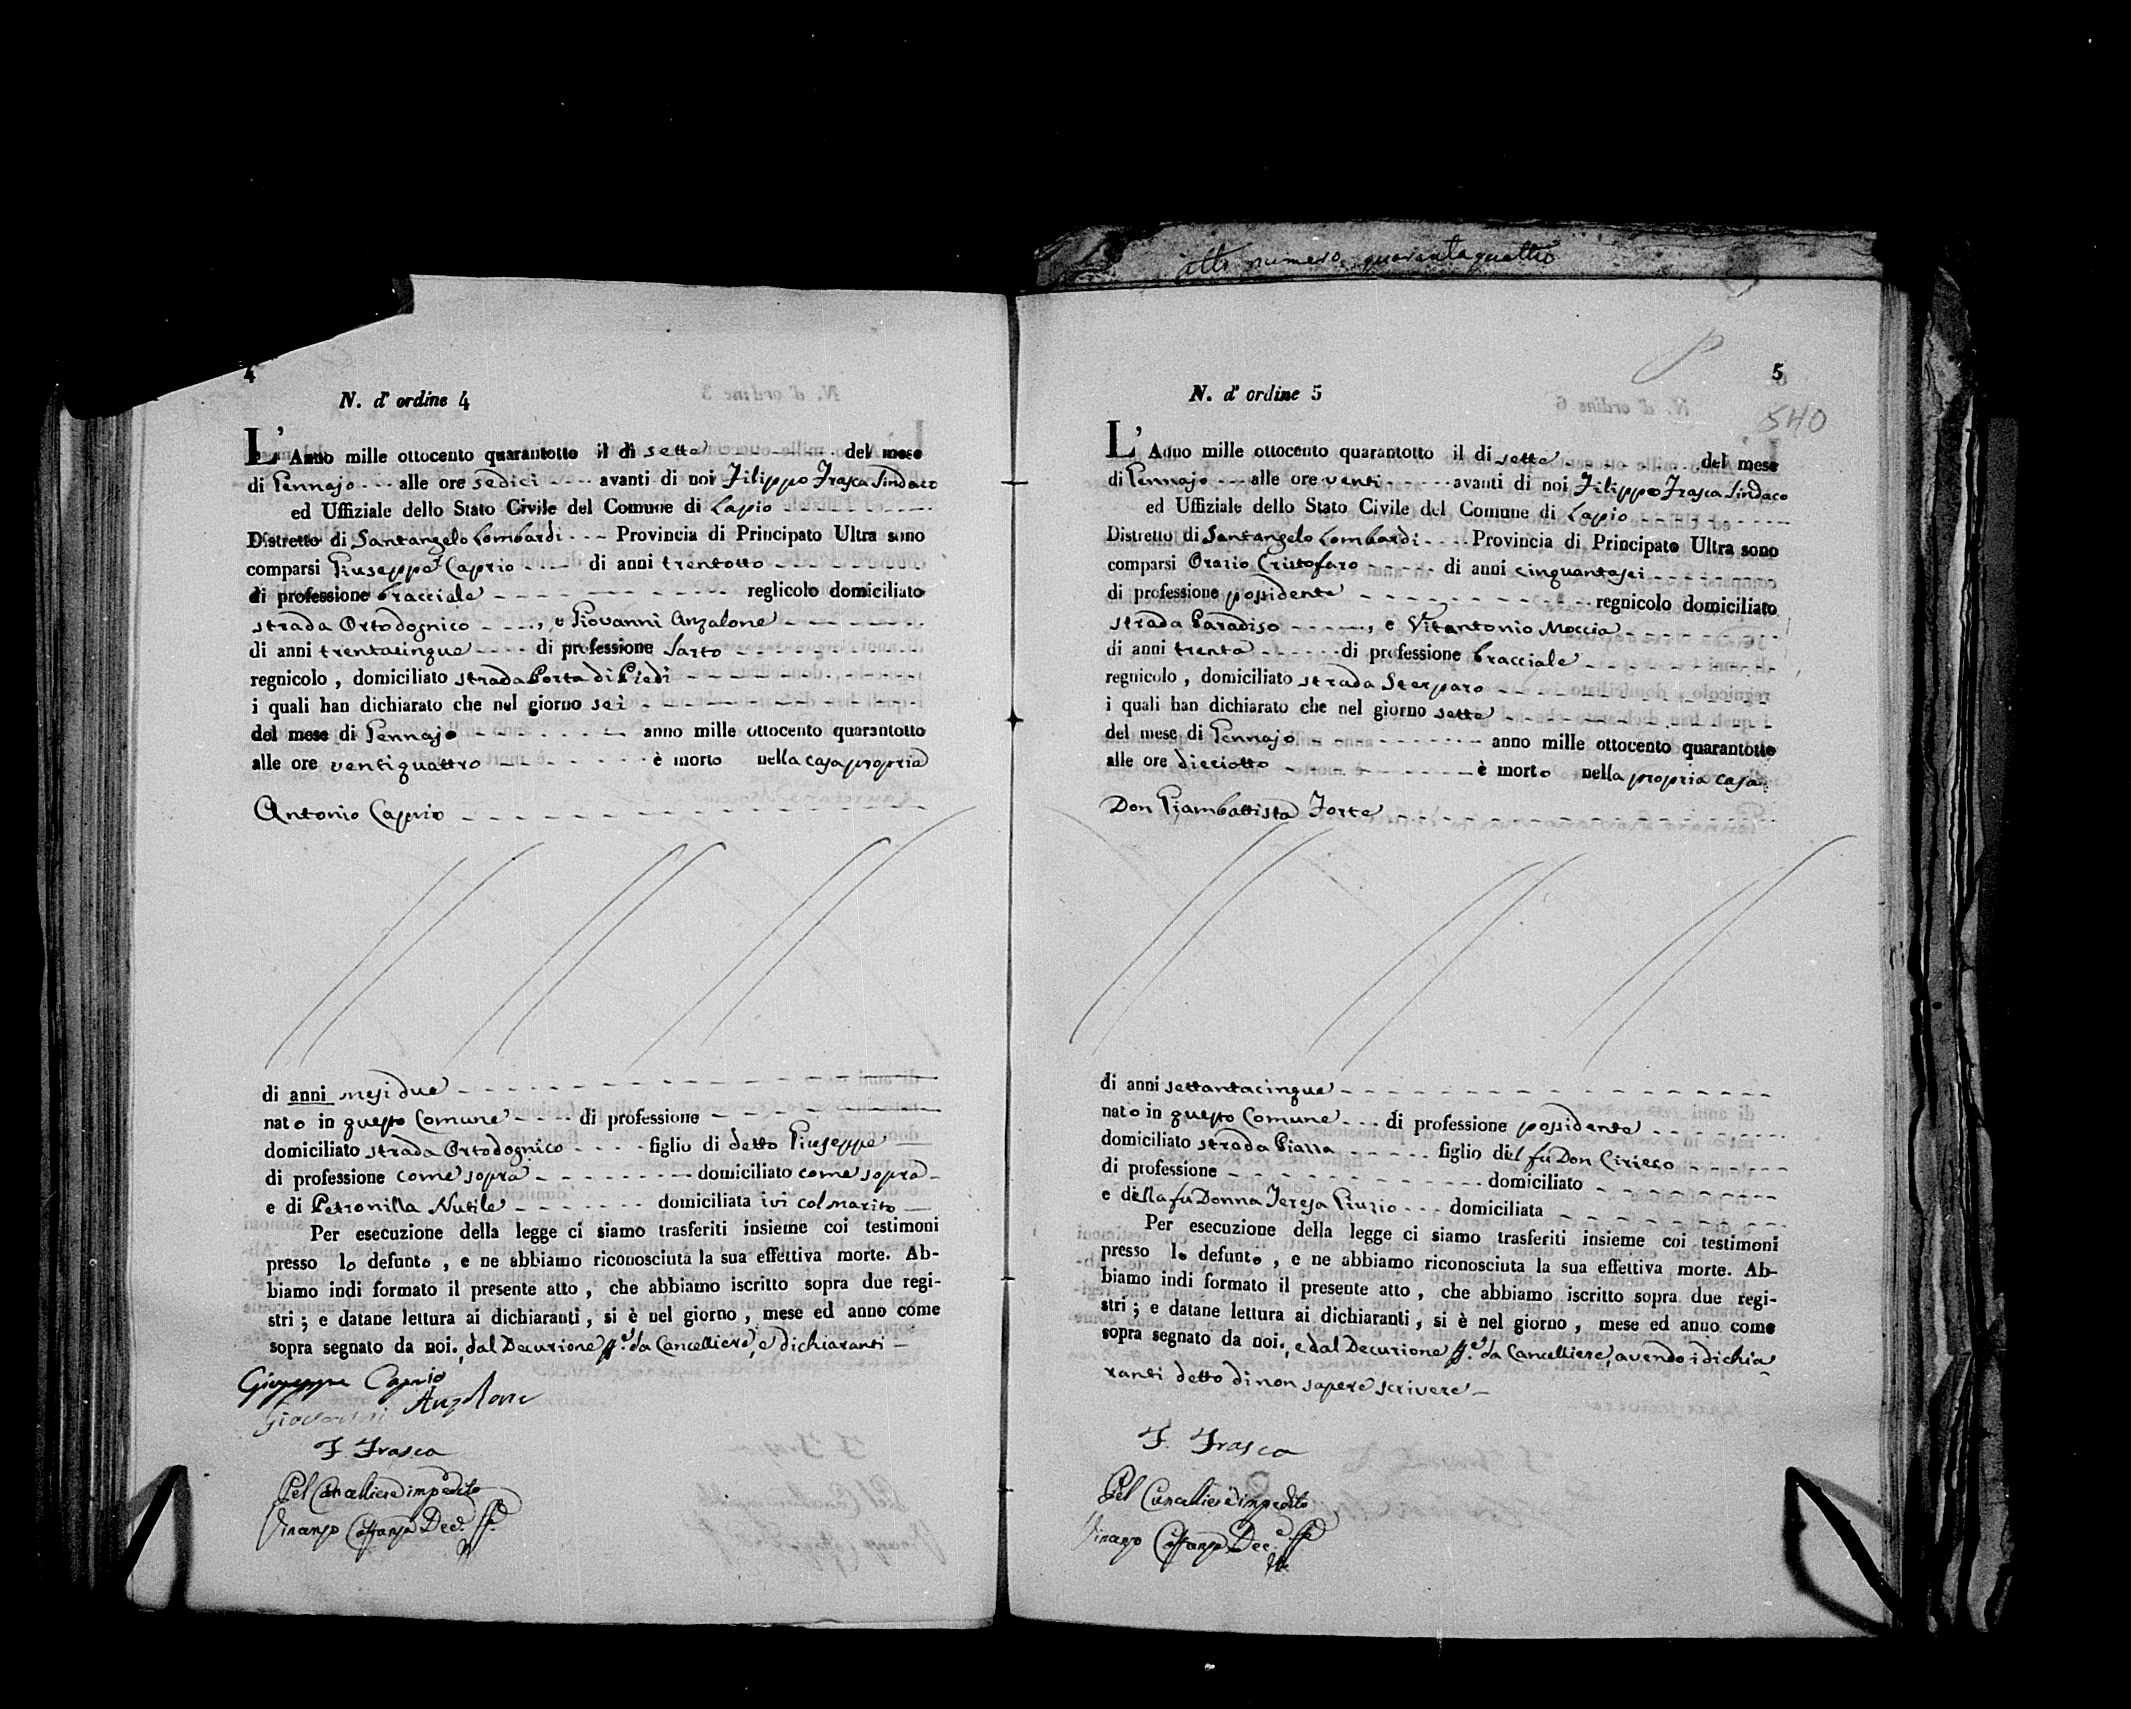 atto numero quarantaquattro
4
N. d' ordine 4
L'Anno mille ottocento quarantotto il dì sette del mese
di Gennajo alle ore sedici avanti di noi Filippo Frasca Sindaco
ed Uffiziale dello Stato Civile del Comune di Lapio
Distretto di Santangelo Lombardi Provincia di Principato Ultra sono
comparsi Giuseppe Caprio di anni trentotto
di professione bracciale reglicolo domiciliato
strada Ortodognico , e Giovanni Anzalone
di anni trentacinque di professione Sarto
regnicolo , domiciliato strada Porta di Piedi
i quali han dichiarato che nel giorno sei
del mese di Gennajo anno mille ottocento quarantotto
alle ore ventiquattro è morto nella casa propria
Antonio Caprio
di anni mesi due
nato in questo Comune di professione
domiciliato strada Ortodognico figlio di detto Giuseppe
di professione come sopra domiciliato come sopra
e di Petronilla Nutile domiciliata ivi col marito
Per esecuzione della legge ci siamo trasferiti insieme coi testimoni
presso lo defunto , e ne abbiamo riconosciuta la sua effettiva morte. Ab-
biamo indi formato il presente atto , che abbiamo iscritto sopra due regi-
stri ; e datane lettura ai dichiaranti , si è nel giorno , mese ed anno come
sopra segnato da noi, dal Decurione ff. da Cancelliere, e dichiaranti
Giuseppe Caprio
Giovanni Anzalone
F. Frasca
Pel Cancelliere impedito
Vinanzo Costanzo Dec. ff.
5
540
N. d' ordine 5
L'Anno mille ottocento quarantotto il dì sette del mese
di Gennajo alle ore venti avanti di noi Filippo Frasca Sindaco
ed Uffiziale dello Stato Civile del Comune di Lapio
Distretto di Santangelo Lombardi Provincia di Principato Ultra sono
comparsi Orazio Cristofaro di anni cinquantasei
di professione possidente regnicolo domiciliato
strada Paradiso , e Vitantonio Moccia
di anni trenta di professione bracciale
regnicolo , domiciliato strada Sterparo
i quali han dichiarato che nel giorno sette
del mese di Gennajo anno mille ottocento quarantotto
alle ore dieciotto è morto nella propria casa
Don Giambattista Forte
di anni settantacinque
nato in questo Comune di professione possidente
domiciliato strada Piazza figlio del fu Don Cirieco
di professione domiciliato
e della fu Donna Teresa Giurio domiciliata
Per esecuzione della legge ci siamo trasferiti insieme coi testimoni
presso lo defunto , e ne abbiamo riconosciuta la sua effettiva morte. Ab-
biamo indi formato il presente atto , che abbiamo iscritto sopra due regi-
stri ; e datane lettura ai dichiaranti , si è nel giorno , mese ed anno come
sopra segnato da noi, e dal Decurione ff. da Cancelliere, avendo i dichia
ranti detto di non sapere scrivere
F. Frasca
Pel Cancelliere impedito
Vinanzo Costanzo Dec. ff.